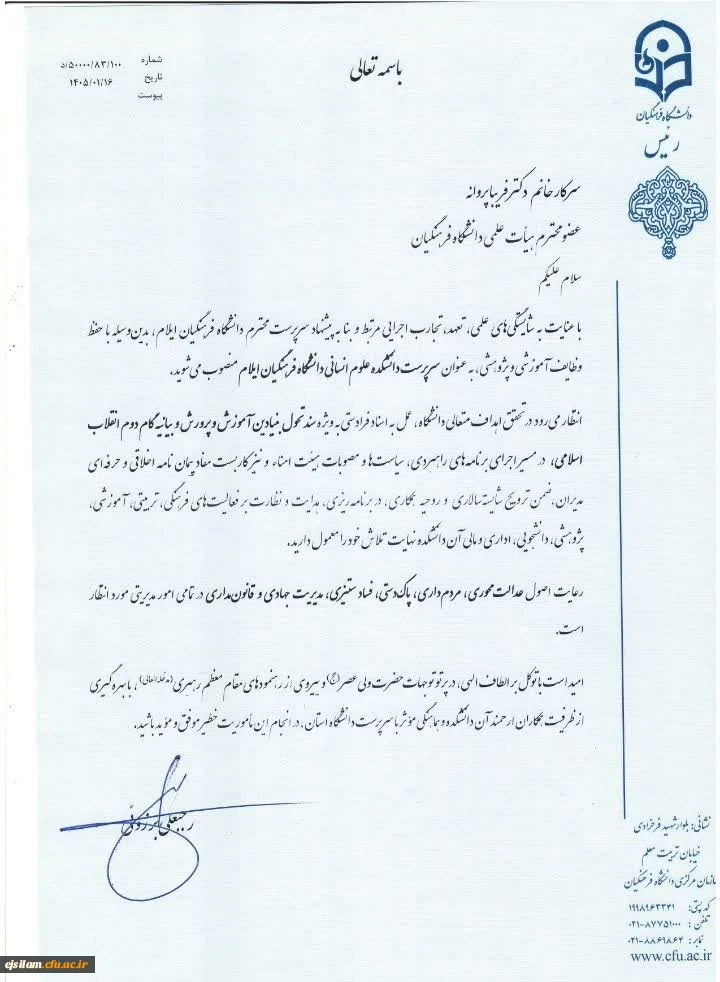 باسمه تعالی
شماره ۵۰۰۰۰/۸۳/۱۰۰/د
تاریخ ۱۴۰۵/۰۱/۱۶
پیوست
دانشگاه فرهنگیان
رئیس
سرکار خانم دکتر فریبا پروانه
عضو محترم هیأت علمی دانشگاه فرهنگیان
سلام علیکم
با عنایت به شایستگی‌های علمی، تعهد، تجارب اجرایی مرتبط و بنا به پیشنهاد سرپرست محترم دانشگاه فرهنگیان ایلام، بدین‌وسیله با حفظ
وظایف آموزشی و پژوهشی، به عنوان سرپرست دانشکده علوم انسانی دانشگاه فرهنگیان ایلام منصوب می‌شوید.
انتظار می‌رود در تحقق اهداف متعالی دانشگاه، عمل به اسناد فرادستی به ویژه سند تحول بنیادین آموزش و پرورش و بیانیه گام دوم انقلاب
اسلامی، در مسیر اجرای برنامه‌های راهبردی، سیاست‌ها و مصوبات هیئت امناء و نیز کاربست مفاد پیمان نامه اخلاقی و حرفه‌ای
مدیران، ضمن ترویج شایسته‌سالاری و روحیه همکاری، در برنامه‌ریزی، هدایت و نظارت بر فعالیت‌های فرهنگی، تربیتی، آموزشی،
پژوهشی، دانشجویی، اداری و مالی آن دانشکده نهایت تلاش خود را معمول دارید.
رعایت اصول عدالت محوری، مردم‌داری، پاک‌دستی، فساد ستیزی، مدیریت جهادی و قانون‌مداری در تمامی امور مدیریتی مورد انتظار
است.
امید است با توکل بر الطاف الهی، در پرتو توجهات حضرت ولی عصر(عج) و پیروی از رهنمودهای مقام معظم رهبری (مدظله‌العالی)، با بهره‌گیری
از ظرفیت همکاران ارجمند آن دانشکده و هماهنگی مؤثر با سرپرست دانشگاه استان، در انجام این مأموریت خطیر موفق و مؤید باشید.
رجبعلی برزوئی
نشانی: بلوار شهید فرحزادی
خیابان تربیت معلم
سازمان مرکزی دانشگاه فرهنگیان
کد پستی: ۱۹۹۸۹۶۳۳۴۱
تلفن: ۰۲۱-۸۷۷۵۱۰۰۰
نمابر: ۰۲۱-۸۸۶۹۸۶۴
www.cfu.ac.ir
ejsilam.cfu.ac.ir